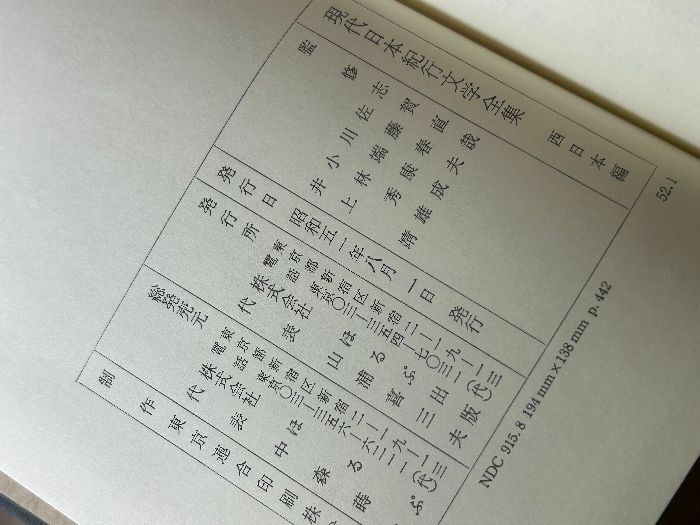 現代日本紀行文学全集 西日本編
監修
志賀直哉
佐藤春夫
川端康成
小林秀雄
井上靖
発行日 昭和五一年八月一日 発行
発行所
東京都新宿区新宿二―一九―一三
電話 東京〇三―三五四―七〇三一(代)
株式会社ほるぷ出版
代表 山浦喜三夫
総発売元
東京都新宿区新宿二―一九―一三
電話 東京〇三―三五六―六二一一(代)
株式会社ほるぷ
代表 中森蒔
制作 東京連合印刷株
NDC 915.8 194mm×138mm p. 442
52.1